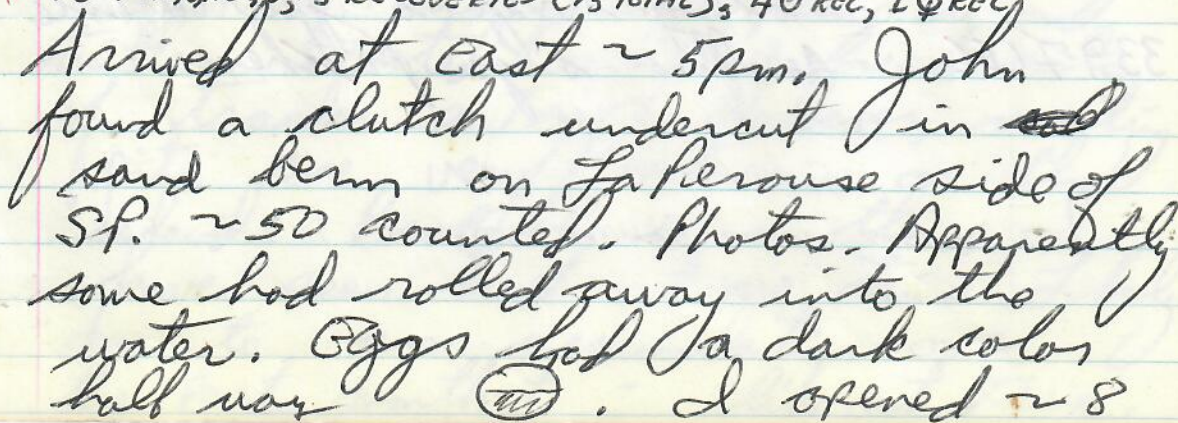 RECOVERIES (13 TOTAL), 4♂ REC, 1♀ REC
Arrived at East ~ 5pm. John
found a clutch undercut in
sand berm on LaPerouse side of
SP. ~50 counted. Photos. Apparently
some had rolled away into the
water. Eggs had a dark color
half way . I opened ~ 8